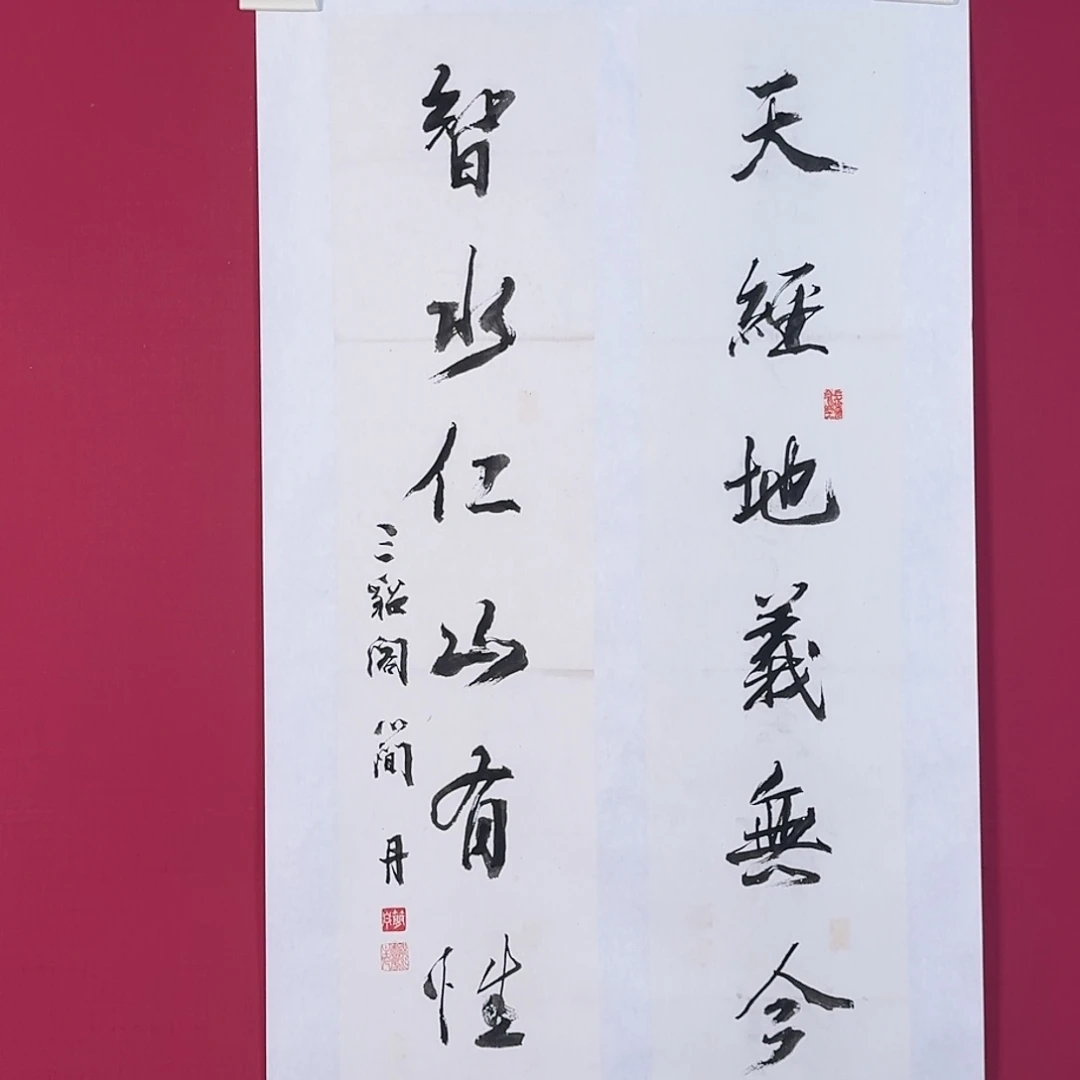 天經地義無今
智水仁山有性
三貂閣 簡 丹